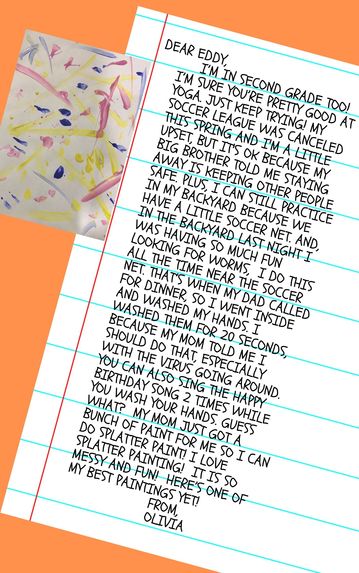 DEAR EDDY,
I'M IN SECOND GRADE TOO!
I'M SURE YOU'RE PRETTY GOOD AT
YOGA. JUST KEEP TRYING! MY
SOCCER LEAGUE WAS CANCELED
THIS SPRING AND I'M A LITTLE
UPSET, BUT IT'S OK BECAUSE MY
BIG BROTHER TOLD ME STAYING
AWAY IS KEEPING OTHER PEOPLE
SAFE. PLUS, I CAN STILL PRACTICE
IN MY BACKYARD BECAUSE WE
HAVE A LITTLE SOCCER NET. AND,
IN THE BACKYARD LAST NIGHT I
WAS HAVING SO MUCH FUN
LOOKING FOR WORMS. I DO THIS
ALL THE TIME NEAR THE SOCCER
NET. THAT'S WHEN MY DAD CALLED
FOR DINNER. SO I WENT INSIDE
AND WASHED MY HANDS. I
WASHED THEM FOR 20 SECONDS,
BECAUSE MY MOM TOLD ME I
SHOULD DO THAT, ESPECIALLY
WITH THE VIRUS GOING AROUND.
YOU CAN ALSO SING THE HAPPY
BIRTHDAY SONG 2 TIMES WHILE
YOU WASH YOUR HANDS. GUESS
WHAT? MY MOM JUST GOT A
BUNCH OF PAINT FOR ME SO I CAN
DO SPLATTER PAINT! I LOVE
SPLATTER PAINTING! IT IS SO
MESSY AND FUN! HERE'S ONE OF
MY BEST PAINTINGS YET!
FROM,
OLIVIA